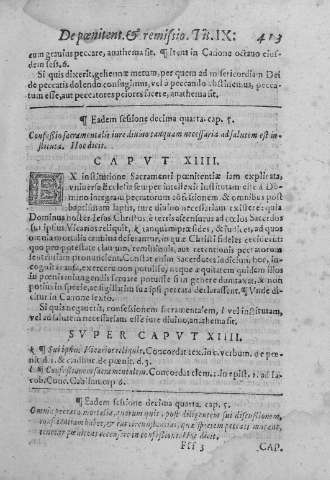 De pœnitent. & remissio. Tit. IX: 413
eum grauius peccare, anathema sit. ¶ Item in Canone octauo eius-
dem sess. 6.
Si quis dixerit, gehennæ metum, per quem ad misericordiam Dei
de peccatis dolendo confugimus, vel à peccando abstinemus, pecca-
tum esse, aut peccatores peiores facere, anathema sit.
¶ Eadem sessione decima quarta. cap. 5.
Confessio sacramentalis iure diuino tanquam necessaria ad salutem est in-
stituta. Hoc dicit.
CAPVT XIIII.
EX institutione Sacramenti pœnitentiæ iam explicata,
vniuersa Ecclesia semper intellexit institutam esse à Do-
mino integram peccatorum confessionem, & omnibus post
baptismum lapsis, iure diuino necessariam existere: quia
Dominus noster Iesus Christus, è terris ascensurus ad cœlos Sacerdo
tes sui ipsius Vicarios reliquit, tanquam præsides, & iudices, ad quos
omnia mortalia crimina deferantur, in quæ Christi fideles ceciderint
quo pro potestate clauium, remissionis, aut retentionis peccatorum
sententiam pronuncient. Constat enim Sacerdotes iudicium hoc, in-
cognita causa, exercere non potuisse, neque æquitatem quidem illos
in pœnitentijs iniungendis seruare potuisse si in genere dumtaxat, & non
potius in specie, ac sigillatim sua ipsi peccata declarassent. ¶ Vnde di-
citur in Canone sexto.
Si quis negauerit, confessionem sacramentalem, vel institutam,
vel ad salutem necessariam esse iure diuino, anathema sit.
SVPER CAPVT XIIII.
¶ Sui ipsius Vicarios reliquit. Concordat tex. in c. verbum. de pœ-
nit. d. 1.
¶ Confessionem sacramentalem. Concordat
cap. 6.
¶ Eadem sessione decima quarta. cap. 5.
Omnia peccata mortalia, quorum quis, post diligentem sui discussionem,
conscientiam habet, & eas circunstantias, quæ speciem peccati mutant,
tenetur pœnitens recensere in confessione. Hoc dicit.
Ff 3 CAP.